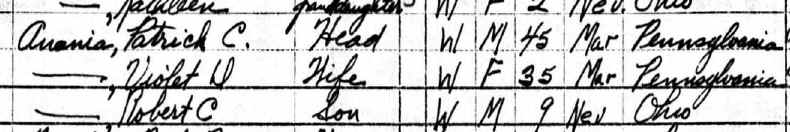 —, Kathleen granddaughter W F 2 Nev. Ohio
Anania, Patrick C. Head W M 45 Mar Pennsylvania
—, Violet D Wife W F 35 Mar Pennsylvania
—, Robert C Son W M 9 Nev Ohio